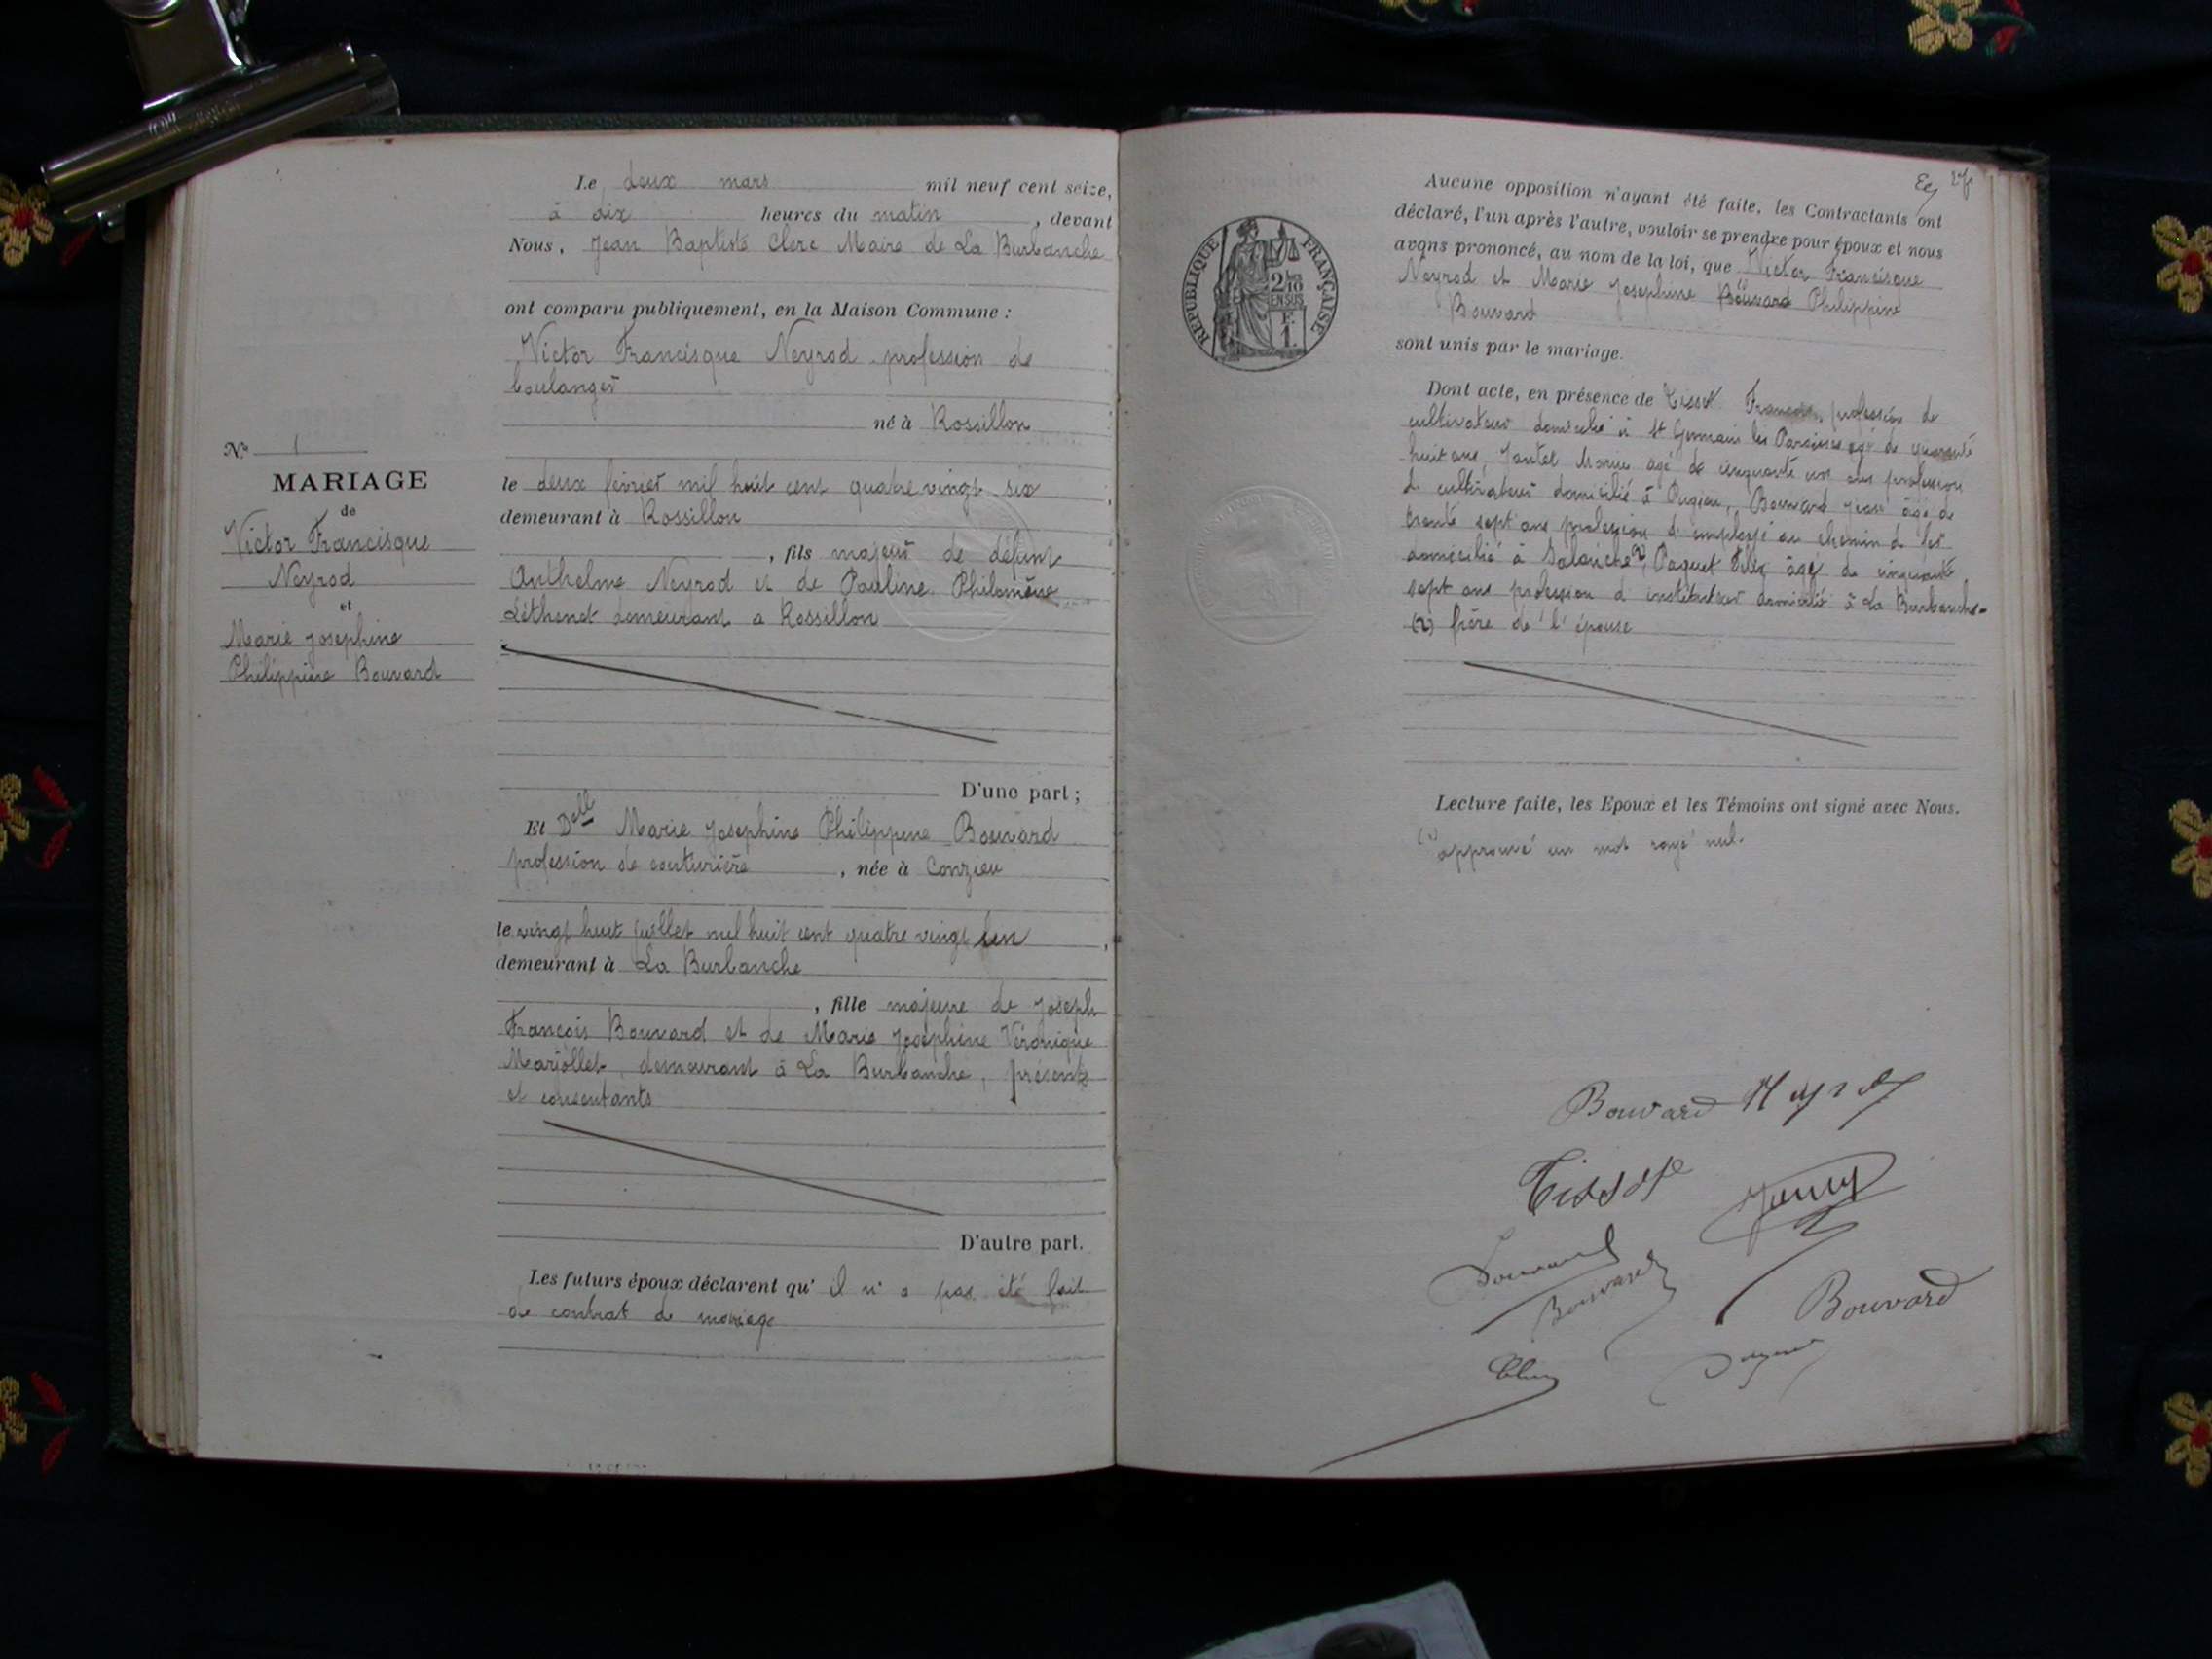 N° 1
MARIAGE
de
Victor Francisque
Neyrod
et
Marie Josephine
Philippine Bouvard
Le deux mars mil neuf cent seize,
à dix heures du matin, devant
Nous, Jean Baptiste Clerc Maire de La Burbanche
ont comparu publiquement, en la Maison Commune :
Victor Francisque Neyrod profession de
boulanger
né à Rossillon
le deux février mil huit cent quatre vingt six
demeurant à Rossillon
, fils majeur de défunt
Anthelme Neyrod et de Pauline Philomène
demeurant a Rossillon
D'une part ;
Et Delle Marie Josephine Philippine Bouvard
profession de couturière, née à Conzieu
le vingt huit juillet mil huit cent quatre vingt un,
demeurant à La Burbanche
, fille majeure de Joseph
François Bouvard et de Marie Joséphine Véronique
Mariollet, demeurant à La Burbanche, présents
et consentants
D'autre part.
Les futurs époux déclarent qu' il n'a pas été fait
de contrat de mariage
27
RÉPUBLIQUE FRANÇAISE
2/10 EN SUS
F.
1.
Aucune opposition n'ayant été faite, les Contractants ont
déclaré, l'un après l'autre, vouloir se prendre pour époux et nous
avons prononcé, au nom de la loi, que Victor Francisque
Neyrod et Marie Josephine Bouvard Philippine
Bouvard
sont unis par le mariage.
Dont acte, en présence de Tissot François, profession de
cultivateur domicilié à St Germain les Paroisses agé de quarante
huit ans, Marius agé de cinquante un ans profession
d cultivateur domicilié à Pugieu, Bouvard Jean âgé de
trente sept ans profession d'employé au chemin de fer
domicilié à (2) Paquet Félix âgé de cinquante
sept ans profession d instituteur domicilié à La Burbanche.
(2) frère de l'épouse
Lecture faite, les Epoux et les Témoins ont signé avec Nous.
(1) approuvé un mot rayé nul.
Bouvard
Tissot
Bouvard
Bouvard